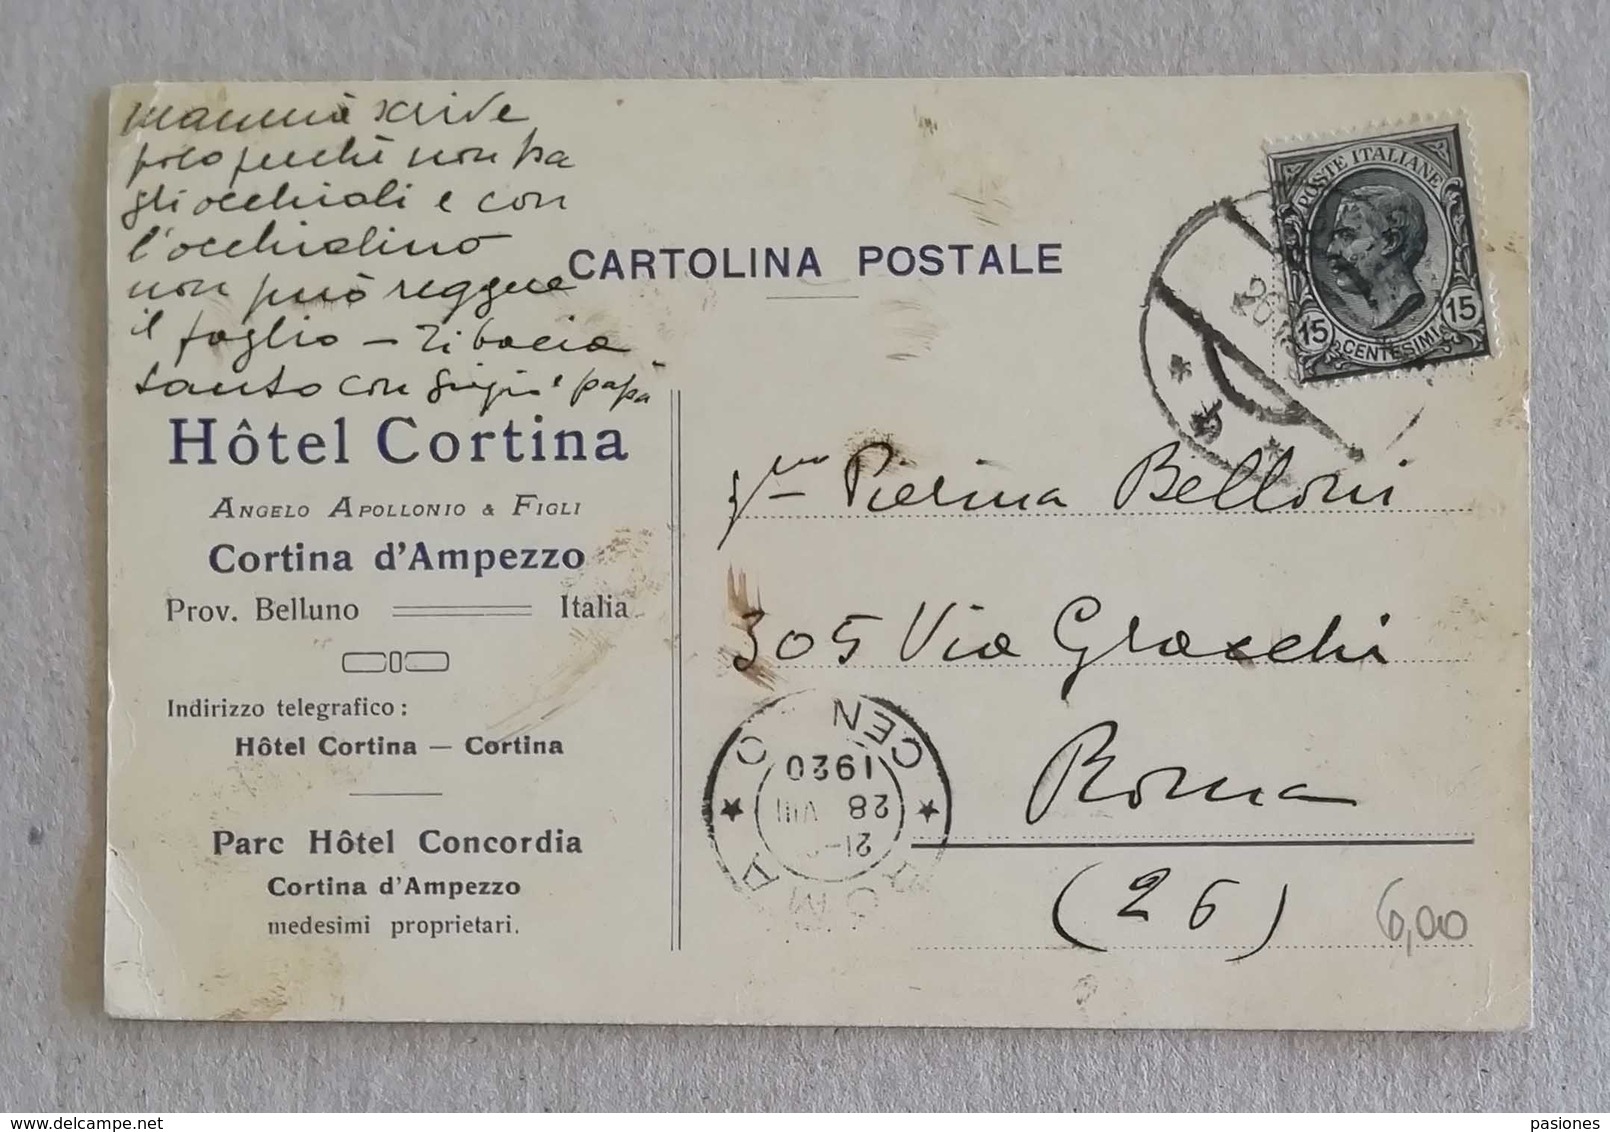 mammà scrive
poco perchè non ha
gli occhiali e con
l'occhialino
non può reggere
il foglio – Ti bacia
tanto con Gigi e papà
CARTOLINA POSTALE
POSTE ITALIANE
15 CENTESIMI 15
Hôtel Cortina
ANGELO APOLLONIO & FIGLI
Cortina d'Ampezzo
Prov. Belluno Italia
Indirizzo telegrafico:
Hôtel Cortina — Cortina
Parc Hôtel Concordia
Cortina d'Ampezzo
medesimi proprietari.
Pierina Belloni
305 Via Gracchi
Roma
(26)
6,00
ROMA CEN
21-
28 VIII
1920
pasiones